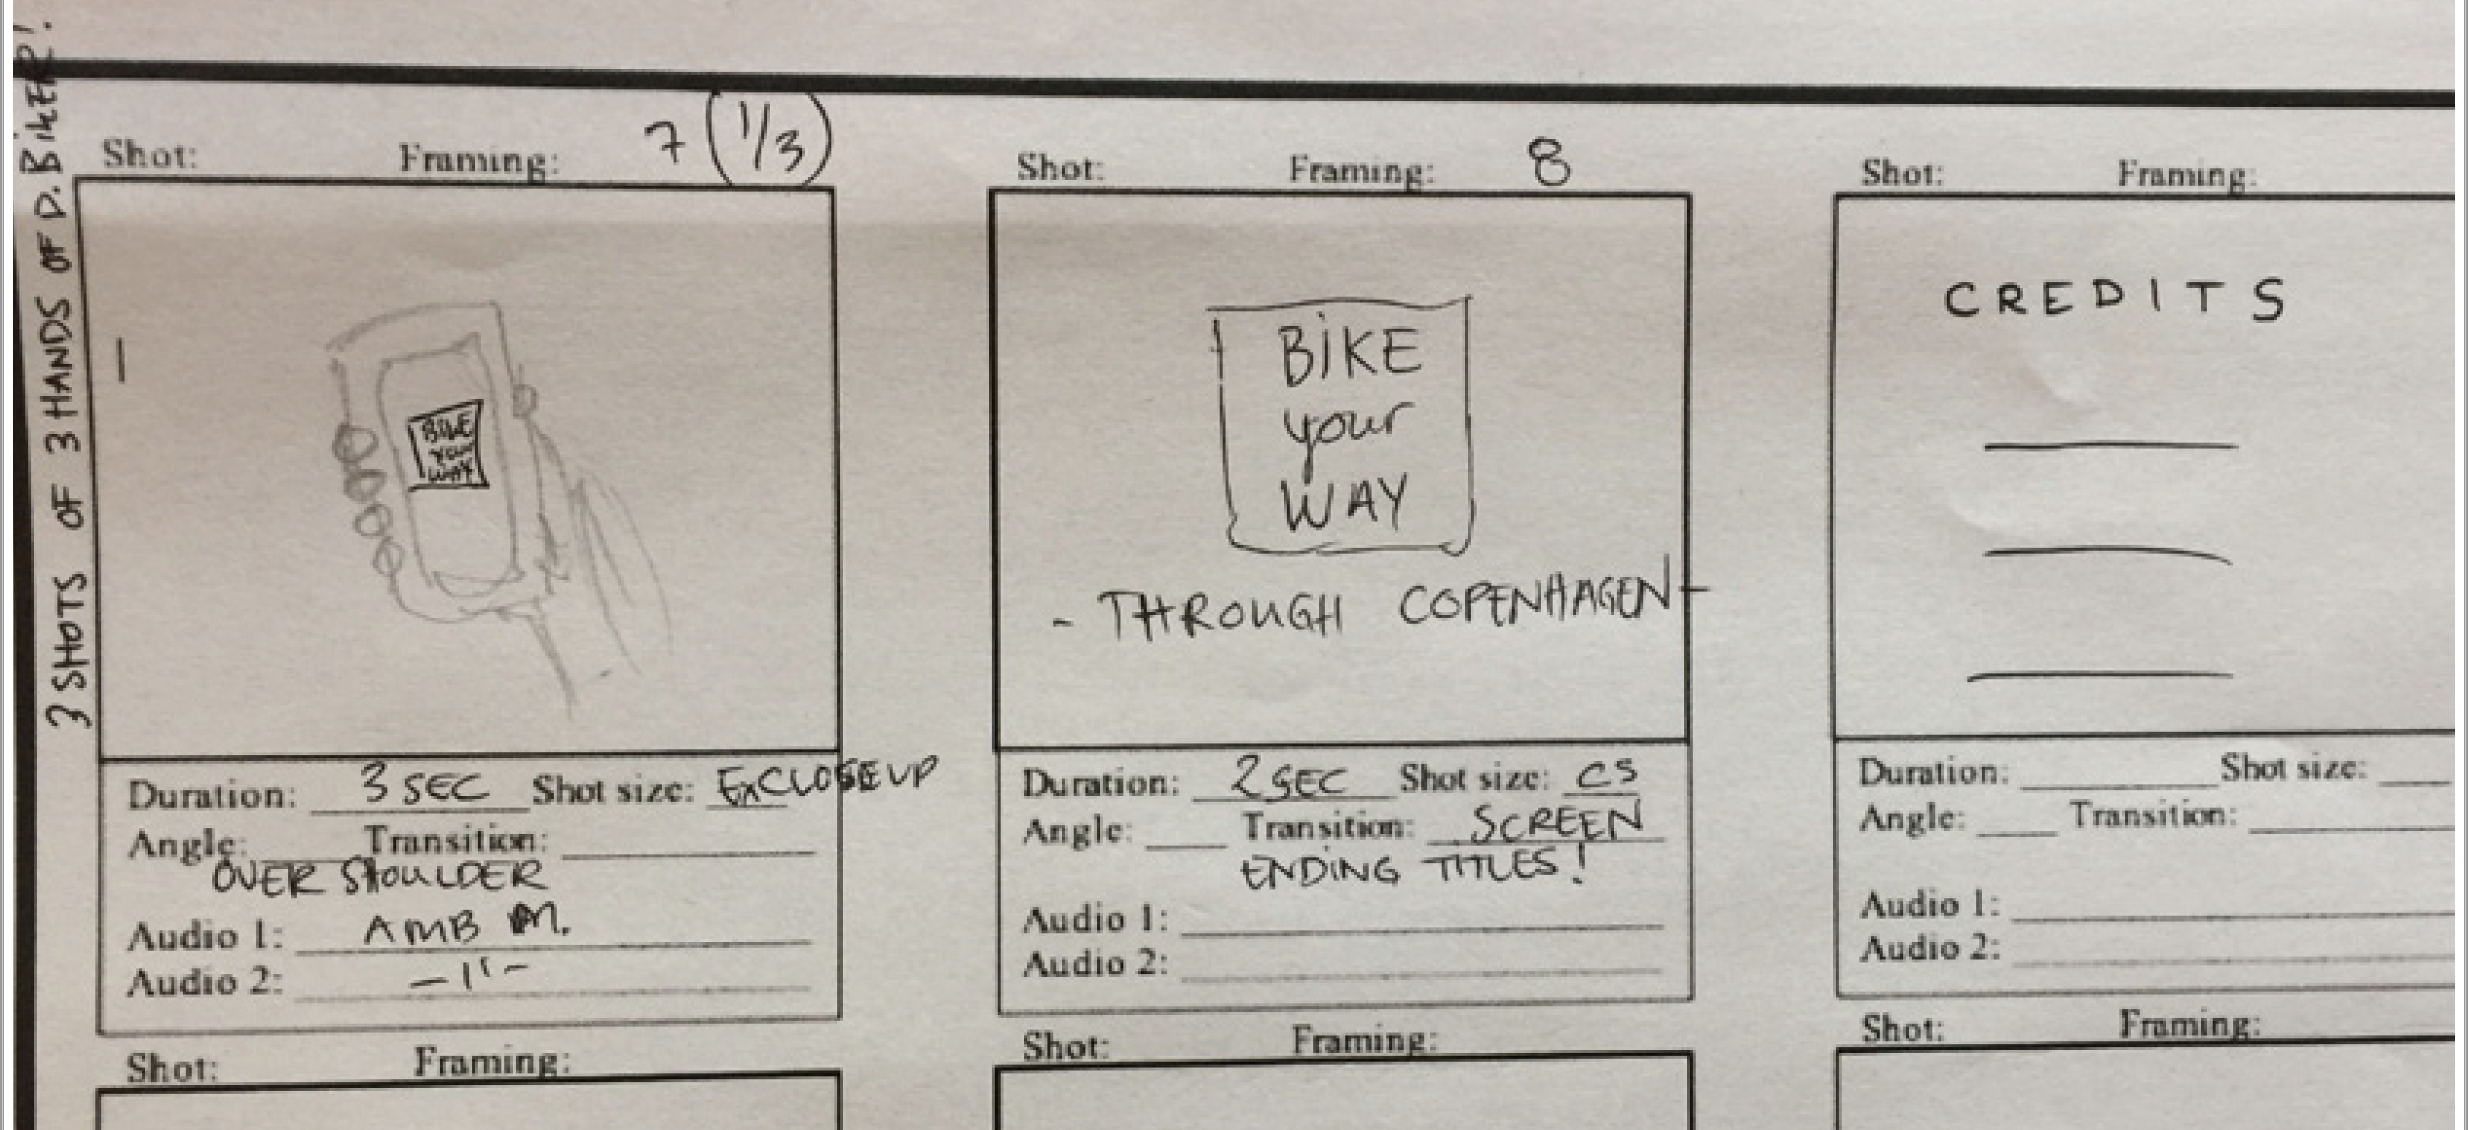 3 SHOTS OF 3 HANDS OF D. BiKER!
Shot: Framing: 7 (1/3)
BIKE
YOUR
WAY
Duration: 3 SEC Shot size: ExCLOSEUP
Angle: Transition:
OVER SHOULDER
Audio 1: AMB M.
Audio 2: -11-
Shot: Framing:
Shot: Framing: 8
BiKE
your
WAY
- THROUGH COPENHAGEN -
Duration: 2 SEC Shot size: CS
Angle: Transition: SCREEN
ENDING TITLES!
Audio 1:
Audio 2:
Shot: Framing:
Shot: Framing:
CREDITS
Duration: Shot size:
Angle: Transition:
Audio 1:
Audio 2:
Shot: Framing: